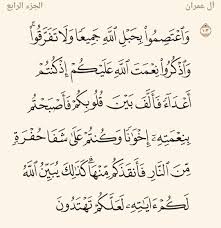 آل عمران
الجزء الرابع
١٠٣
وَاعْتَصِمُوا۟ بِحَبْلِ اللَّهِ جَمِيعًا وَلَا تَفَرَّقُوا۟ۚ
وَاذْكُرُوا۟ نِعْمَتَ اللَّهِ عَلَيْكُمْ إِذْ كُنتُمْ
أَعْدَآءً فَأَلَّفَ بَيْنَ قُلُوبِكُمْ فَأَصْبَحْتُم
بِنِعْمَتِهِۦٓ إِخْوَٰنًا وَكُنتُمْ عَلَىٰ شَفَا حُفْرَةٍ
مِّنَ النَّارِ فَأَنقَذَكُم مِّنْهَاۗ كَذَٰلِكَ يُبَيِّنُ اللَّهُ
لَكُمْ ءَايَٰتِهِۦ لَعَلَّكُمْ تَهْتَدُونَ